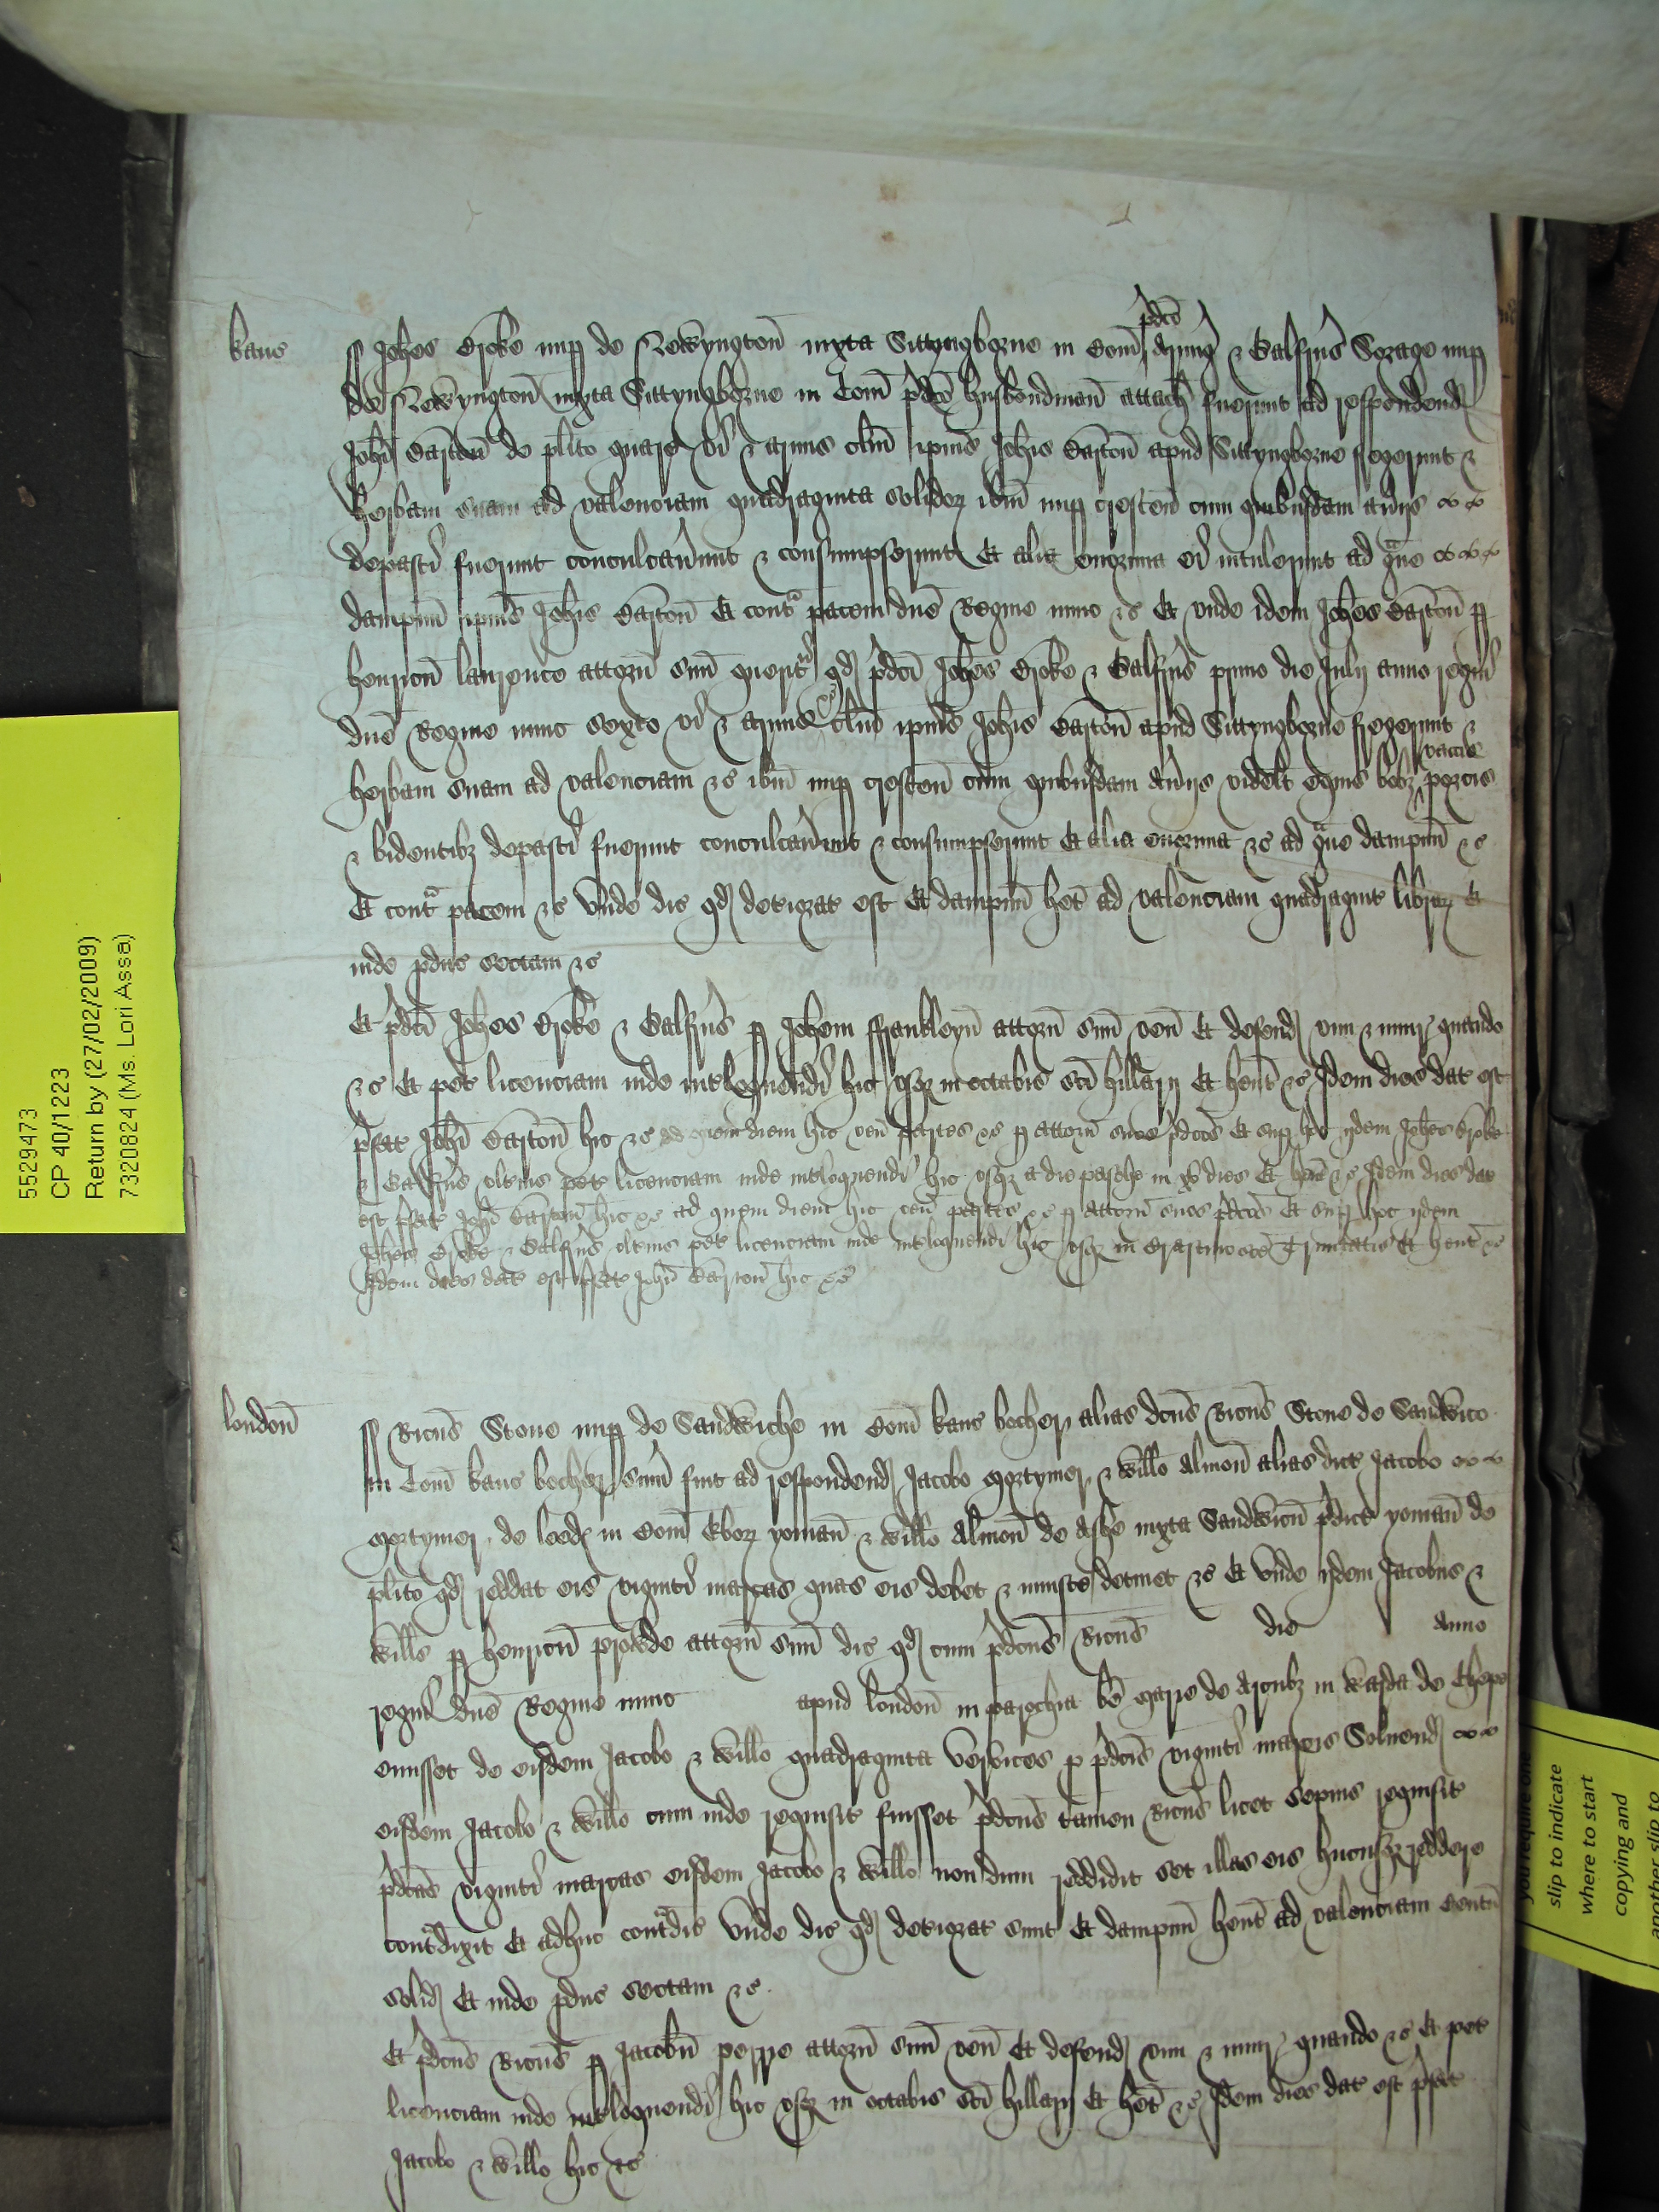 kanc ss Johes Croke nup de Newyngton iuxta Sittyngborne in Com pdco & Galfrus nup
de Newyngton iuxta Sittyngborne in Com pdco husbondman attach fuerunt ad respondend
Johi de plito quare vi & armis clm ipius Johis apud Sittyngborne fregerunt &
herbam suam ad valenciam quadraginta solidor ibm nup crescen cum quibusdam averijs
depasti fuerunt conculcaverunt & consumpserunt Et alia enormia ei intulerunt ad grave
dampnu ipius Johis Et contra pacem dne Regine nunc &c Et unde idem Johes p
henricu laurence attorn suu querit qd pdci Johes Croke & Galfrus primo die Julij anno regni
dne Regine nunc sexto vi & armis &c clm ipius Johis apud Sittyngborne fregerunt &
herbam suam ad valenciam &c ibm nup crescen cum quibusdam averijs videlt equis bobz vaccis porcis
& bidentibz depasti fuerunt conculcaverunt & consumpserunt Et alia enormia &c ad grave dampnu &c
Et contra pacem &c Unde dic qd deteriorat est Et dampnu het ad valenciam quadragint librar Et
inde pduc sectam &c
Et pdci Johes Croke & Galfrus p Johem ffrankleyn attorn suu ven Et defend vim & iniur quando
&c Et pet licenciam inde intloquendi hic usqz in octabis sci hillarij Et hent &c Idem dies dat est
pfat Johi hic &c ad quem diem hic ven partes &c p attorn suos pdcos Et sup hoc ijdem Johes Croke
& Galfrus ulterius pet licenciam inde intloquendi hic usqz a die pasche in xv dies Et hent &c Idem dies dat
est pfat Johi hic &c ad quem diem hic ven partes &c p attorn suos pdcos Et sup hoc ijdem
Johes Croke & Galfrus ulterius pet licenciam inde intloquendi hic usqz in Crastino sce Trinitatis Et hent &c
Idem dies dat est pfat Johi hic &c
london ss Ricus Stone nup de Sandwiche in Com kanc bocher alias dcus Ricus Stone de Sandwico
in Com kanc bocher sum fuit ad respondend Jacobo Mortymer & Willo Almon alias dict Jacobo
Mortymer de leedes in Com Ebor yoman & Willo Almon de Asshe iuxta Sandwicu pdict yoman de
plito qd reddat eis viginti marcas quas eis debet & iniuste detinet &c Et unde ijdem Jacobus &
Willus p henricu attorn suu dic qd cum pdcus Ricus die anno
regni dne Regine nunc apud london in parochia be Marie de Arcubz in Warda de Chepe
emisset de eisdem Jacobo & Willo quadraginta vervices p pdcis viginti marcis Solvend
eisdem Jacobo & Willo cum inde requisit fuisset pdcus tamen Ricus licet sepius requisit
pdcas viginti marcas eisdem Jacobo & Willo non dum reddidit set illas eis hucusqz reddere
contradixit Et adhuc contradic Unde dic qd deteriorat sunt Et dampnu hent ad valenciam Centu
solid Et inde pduc sectam &c
Et pdcus Ricus p Jacobu attorn suu ven Et defend vim & iniur quando &c Et pet
licenciam inde intloquendi hic usqz in octabis sci hillarij Et het &c Idem dies dat est pfat
Jacobo & Willo hic &c
5529473
CP 40/1223
Return by (27/02/2009)
7320824 (Ms. Lori Assa)
you require one
slip to indicate
where to start
copying and
another slip to